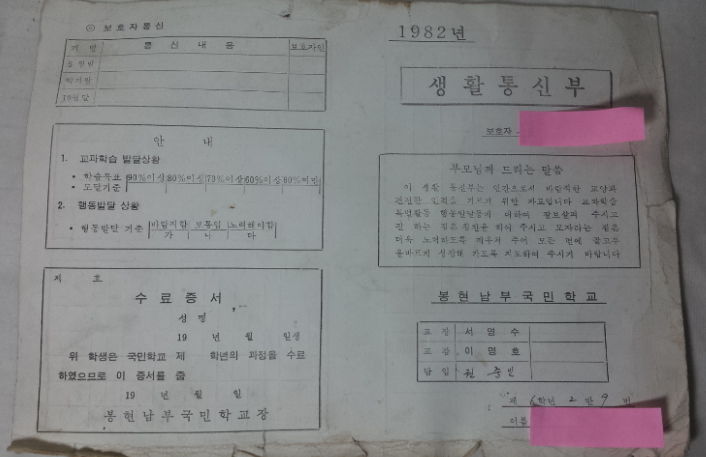 ◎ 보호자통신
통신내용 보호자인
안 내
1. 교과학습 발달상황
• 학습목표 90%이상 80%이상 70%이상 60%이상 60%미만
• 도달기준
2. 행동발달 상황
• 행동발달 기준 바람직함 보통임 노력해야함
가 나 다
제 호
수료증서
성명
19 년 월 일생
위 학생은 국민학교 제 학년의 과정을 수료
하였으므로 이 증서를 줌
19 년 월 일
봉현남부국민학교장
1982년
생활통신부
보호자
부모님께 드리는 말씀
이 생활 통신부는 인간으로서 바람직한 교양과
기르기 위한 자료입니다 교과학습
특별활동 행동발달등에 대하여 살펴 주시고
잘 하는 점은 칭찬을 하여 주시고 모자라는 점은
더욱 노력하도록 주어 모든 면에
올바르게 성장해 가도록 지도하여 주시기 바랍니다
봉현남부국민학교
교장 서명수
교감 이명호
담임
제 6학년 2반 9번
이름